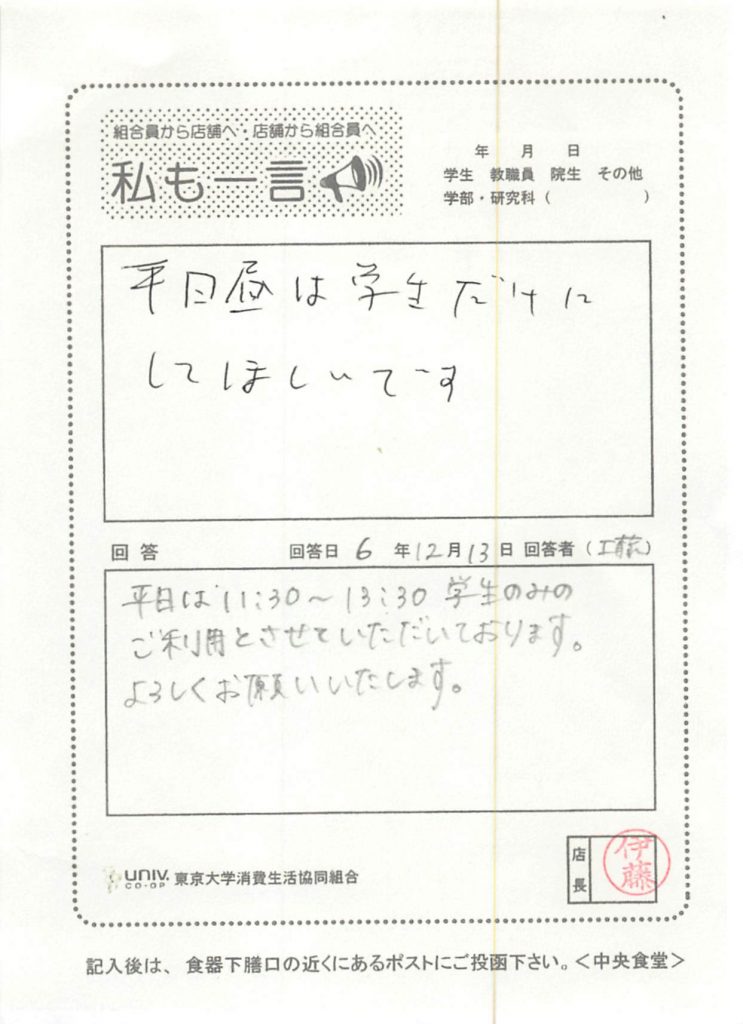 組合員から店舗へ・店舗から組合員へ
私も一言
年 月 日
学生 教職員 院生 その他
学部・研究科 ( )
平日昼は学生だけに
してほしいです
回答 回答日 6 年 12 月 13 日 回答者 (工藤)
平日は 11:30〜13:30 学生のみの
ご利用とさせていただいております。
よろしくお願いいたします。
UNIV. CO-OP 東京大学消費生活協同組合
店長 伊藤
記入後は、食器下膳口の近くにあるポストにご投函下さい。<中央食堂>